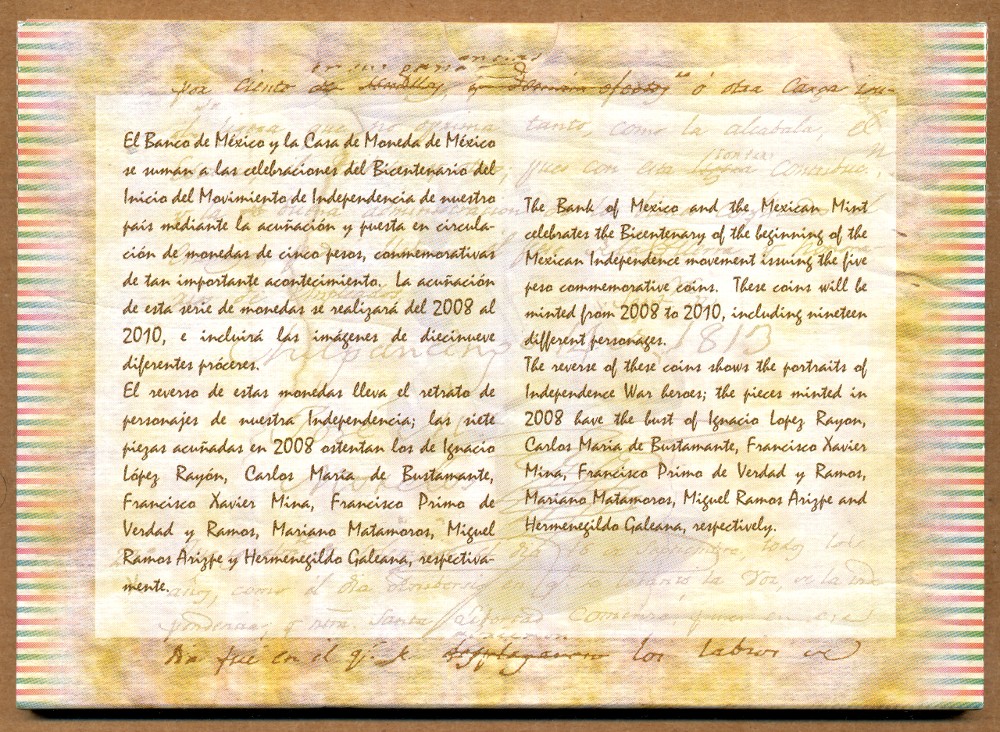 en sus parro ancias
por ciento ó otra carga
El Banco de México y la Casa de Moneda de México
se suman a las celebraciones del Bicentenario del
Inicio del Movimiento de Independencia de nuestro
país mediante la acuñación y puesta en circula-
ción de monedas de cinco pesos, conmemorativas
de tan importante acontecimiento. La acuñación
de esta serie de monedas se realizará del 2008 al
2010, e incluirá las imágenes de diecinueve
diferentes próceres.
El reverso de estas monedas lleva el retrato de
personajes de nuestra Independencia; las siete
piezas acuñadas en 2008 ostentan los de Ignacio
López Rayón, Carlos María de Bustamante,
Francisco Xavier Mina, Francisco Primo de
Verdad y Ramos, Mariano Matamoros, Miguel
Ramos Arizpe y Hermenegildo Galeana, respectiva-
mente.
The Bank of Mexico and the Mexican Mint
celebrates the Bicentenary of the beginning of the
Mexican Independence movement issuing the five
peso commemorative coins. These coins will be
minted from 2008 to 2010, including nineteen
different personages.
The reverse of these coins shows the portraits of
Independence War heroes; the pieces minted in
2008 have the bust of Ignacio Lopez Rayon,
Carlos Maria de Bustamante, Francisco Xavier
Mina, Francisco Primo de Verdad y Ramos,
Mariano Matamoros, Miguel Ramos Arizpe and
Hermenegildo Galeana, respectively.
tanto, como la alcabala, el
pues con esta
1813
como el dia la voz, de la
Santa Libertad comenzó, pues en ese
Dia fué en el q.e se desplegaron los labios de